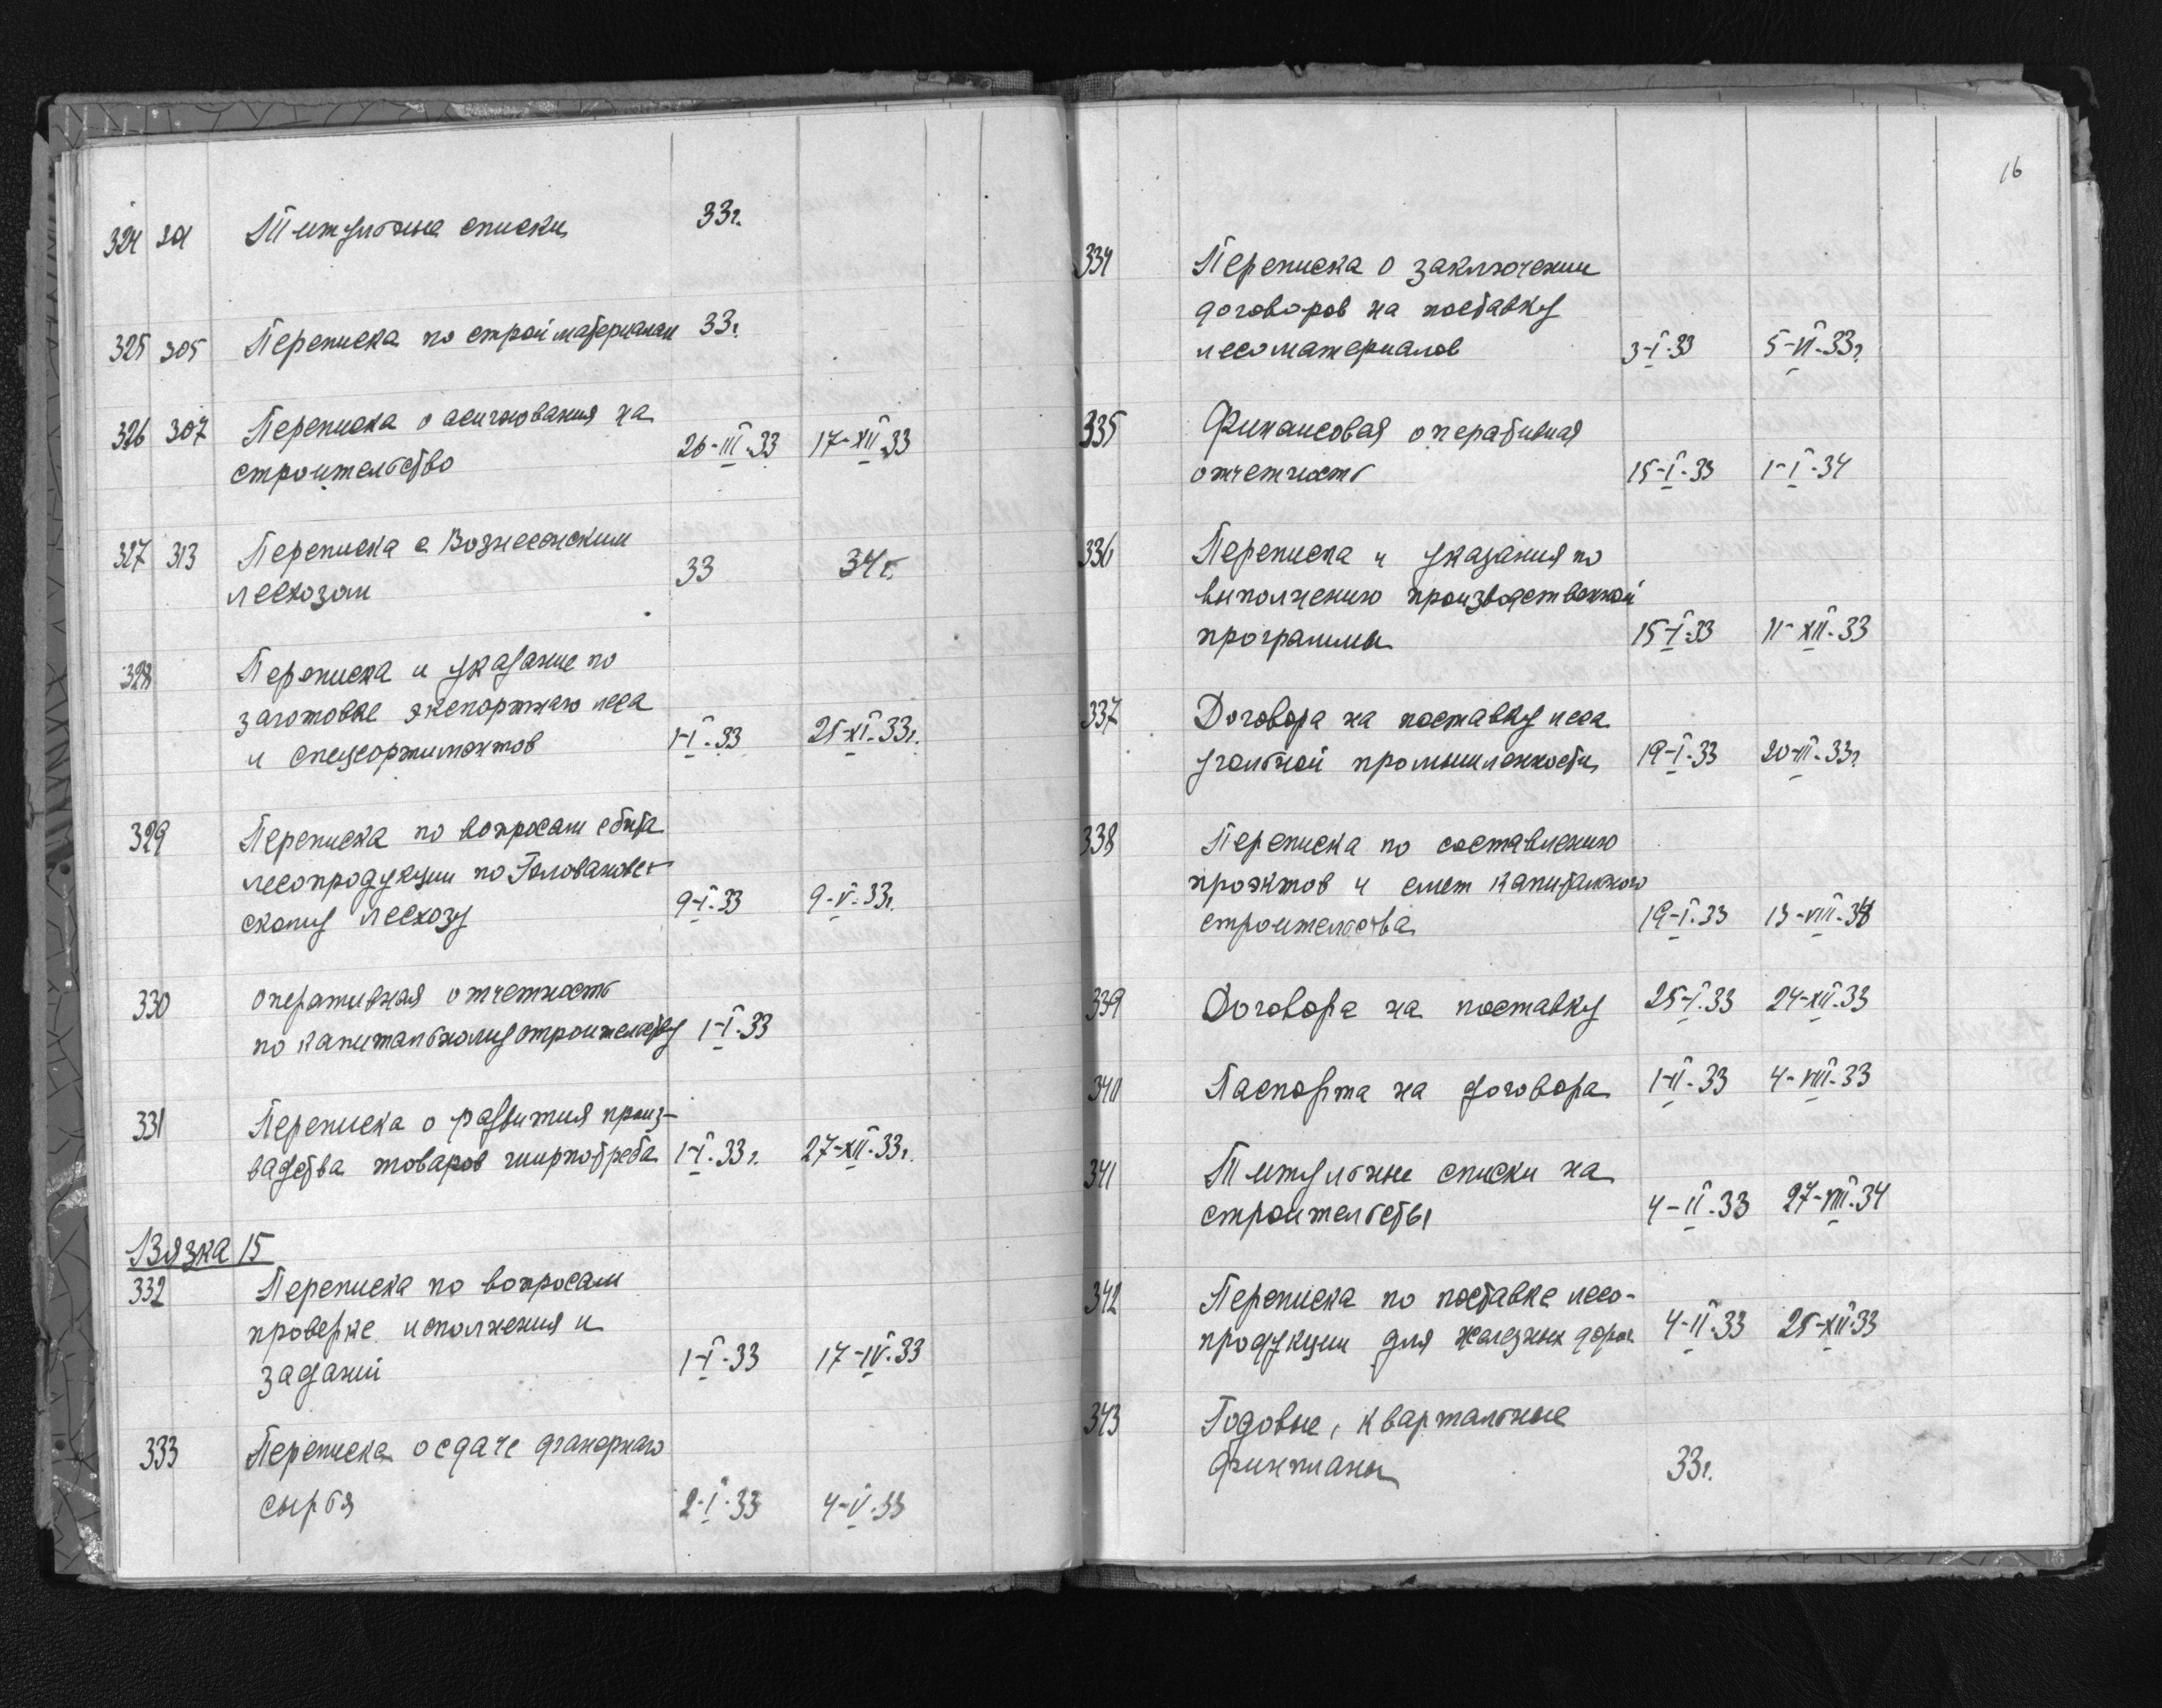 324 Титульные списки 33г.
325 305 Переписка по стройматериалам 33г.
326 307 Переписка о асигнования на
строительство 26-III-33 17-XII-33
327 313 Переписка с Вознесенским
лесхозом 33 34г.
328 Переписка и указание по
заготовке экспортного леса
и спецсортиментов 1-I-33 25-XI-33г.
329 Переписка по вопросам сбыта
лесопродукции по Головановс-
скому лесхозу 9-I-33 9-V-33г.
330 Оперативная отчетность
по капитальному строительству 1-I-33
331 Переписка о развития произ-
вадства товаров ширпотреба 1-I-33г. 27-XII-33г.
Вязка 15
332 Переписка по вопросам
проверке исполнения и
заданий 1-I-33 17-IV-33
333 Переписка о сдаче фанерного
сырья 2-I-33 4-V-33
16
334 Переписка о заключении
договоров на поставку
лесоматериалов 3-I-33 5-VI-33г.
335 Финансовая оперативная
отчетность 15-I-33 1-I-34
336 Переписка и указания по
выполнению производственной
программы 15-I-33 11-XII-33
337 Договора на поставку леса
угольной промышленности 19-I-33 33г.
338 Переписка по составлению
проэктов и смет капитального
строительства 19-I-33
339 Договора на поставку 25-I-33 24-XII-33
340 Паспорта на договора 1-II-33 4-VIII-33
341 Титульные списки на
строительствы 4-II-33 27-VIII-34
342 Переписка по поставке лесо-
продукции для железных дорог 4-II-33 25-XII-33
343 Годовые, квартальные
финпланы 33г.